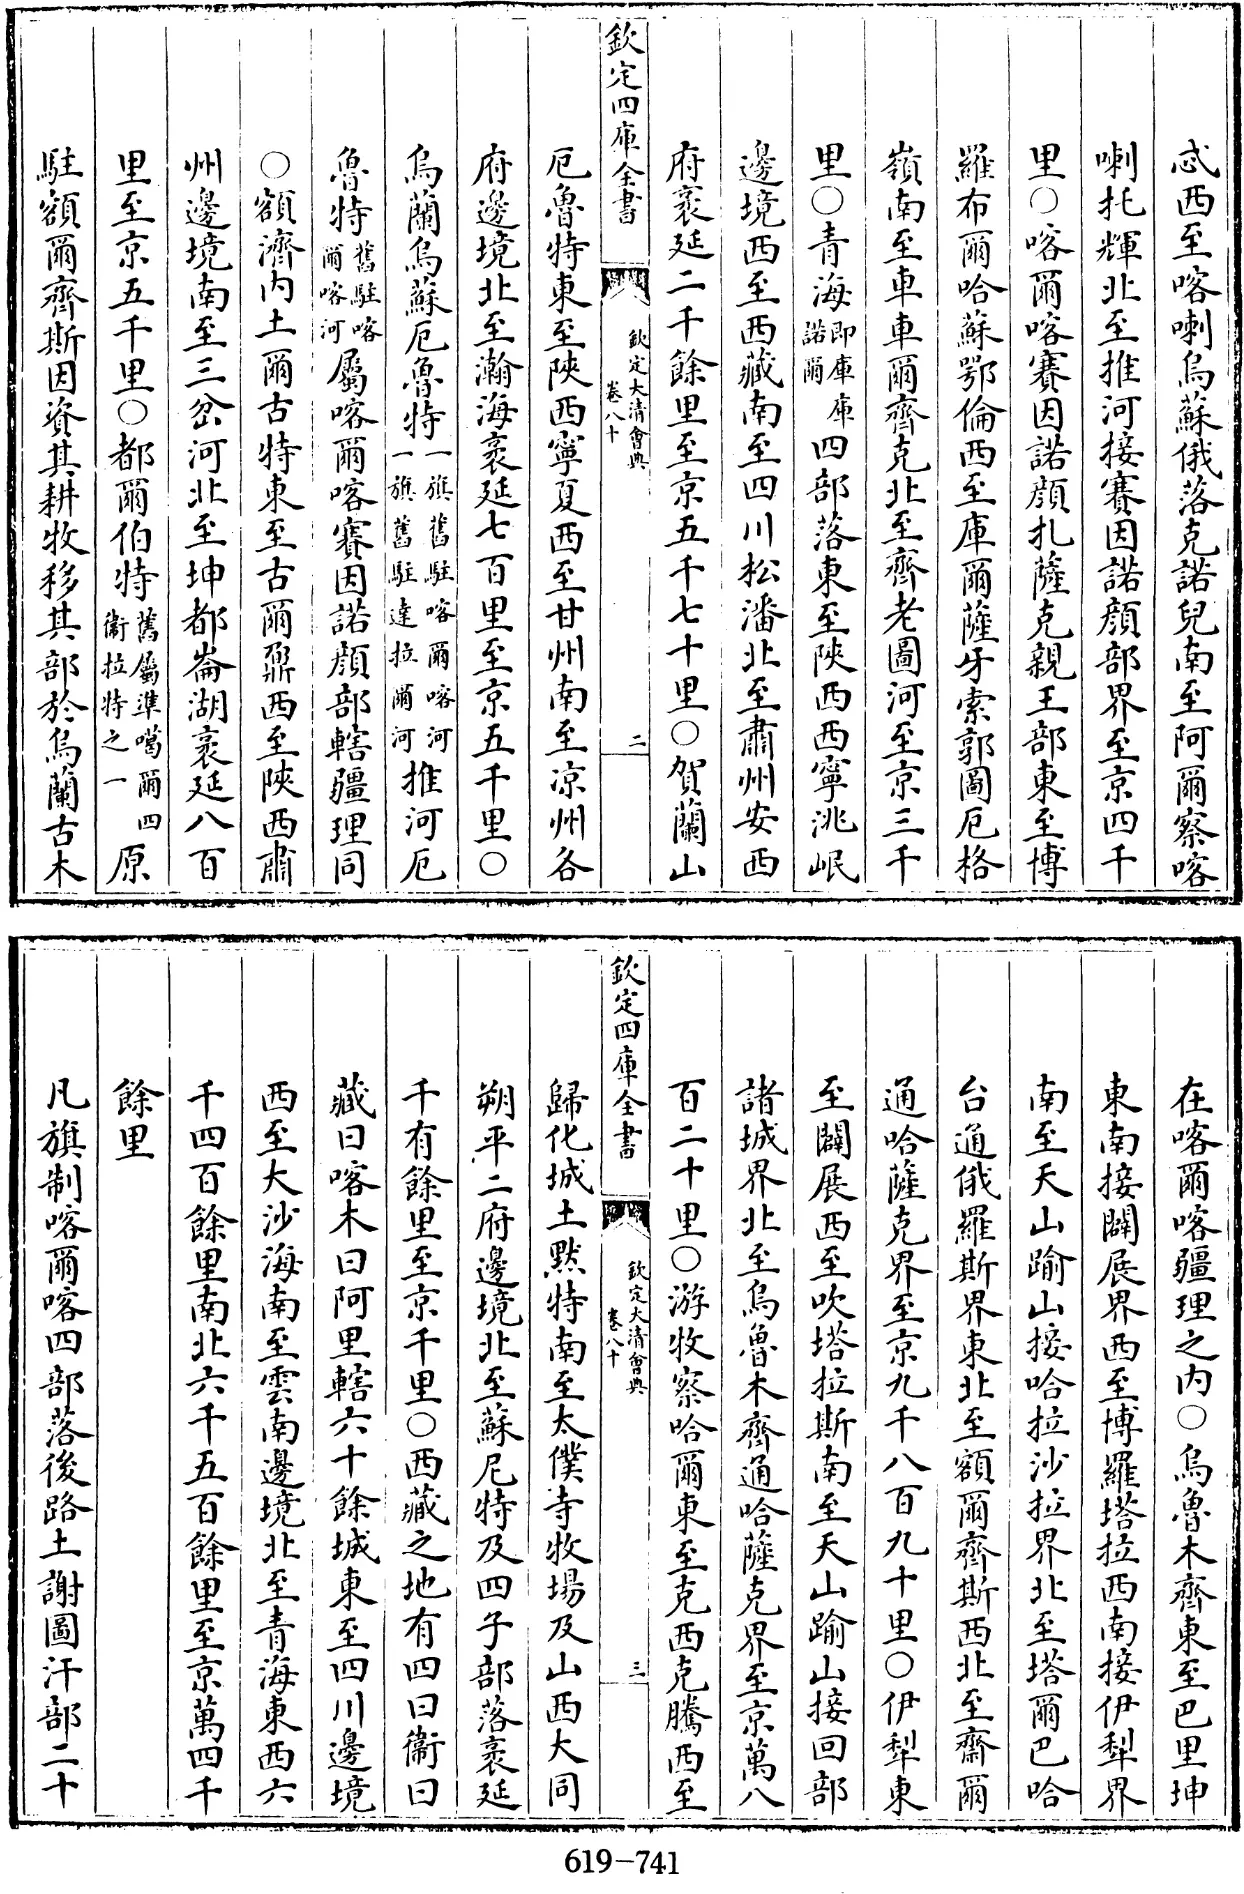 忒西至喀喇烏蘇俄落克諾兒南至阿爾察喀
喇托輝北至推河接賽因諾顔部界至京四千
里○喀爾喀賽因諾顔扎薩克親王部東至博
羅布爾哈蘇鄂倫西至庫爾薩牙索郭圖厄格
嶺南至車車爾齊克北至齊老圖河至京三千
里○青海即庫庫諾爾四部落東至陝西西寧洮岷
邊境西至西藏南至四川松潘北至肅州安西
府袤延二千餘里至京五千七十里○賀蘭山
欽定四庫全書
欽定大清會典
卷八十
二
厄魯特東至陝西寧夏西至甘州南至凉州各
府邊境北至瀚海袤延七百里至京五千里○
烏蘭烏蘇厄魯特一旗舊駐喀爾喀河一旗舊駐達拉爾河推河厄
魯特舊駐喀爾喀河屬喀爾喀賽因諾顔部轄疆理同
○額濟内土爾古特東至古爾鼐西至陝西肅
州邊境南至三岔河北至坤都崙湖袤延八百
里至京五千里○都爾伯特舊屬準噶爾四衞拉特之一原
駐額爾齊斯因資其耕牧移其部於烏蘭古木
在喀爾喀疆理之内○烏魯木齊東至巴里坤
東南接闢展界西至博羅塔拉西南接伊犁界
南至天山踰山接哈拉沙拉界北至塔爾巴哈
台通俄羅斯界東北至額爾齊斯西北至齋爾
通哈薩克界至京九千八百九十里○伊犁東
至闢展西至吹塔拉斯南至天山踰山接回部
諸城界北至烏魯木齊通哈薩克界至京萬八
百二十里○游牧察哈爾東至克西克騰西至
欽定四庫全書
欽定大清會典
卷八十
三
歸化城土黙特南至太僕寺牧場及山西大同
朔平二府邊境北至蘇尼特及四子部落袤延
千有餘里至京千里○西藏之地有四曰衞曰
藏曰喀木曰阿里轄六十餘城東至四川邊境
西至大沙海南至雲南邊境北至青海東西六
千四百餘里南北六千五百餘里至京萬四千
餘里
凡旗制喀爾喀四部落後路土謝圖汗部二十
619-741